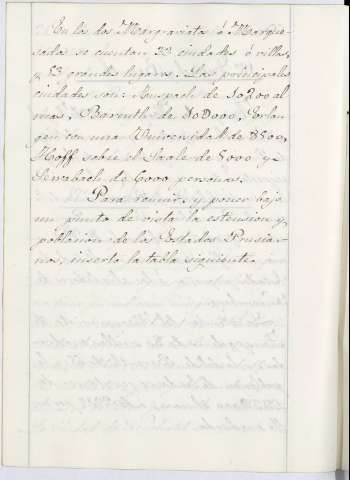 En los dos Margraviatos ó Marque-
sados se cuentan 33 ciudades ó villas,
y 53 grandes lugares. Las principales
ciudades son: Anspach de 10200 al
mas, Bareuth de 10000, Erlan-
gen con una Universidad de 8500,
Hoff sobre el Saale de 5000 y
Schwabach de 6000 personas.
Para reunir, y poner bajo
un punto de vista la estension y
poblacion de los Estados Prusia-
nos, inserto la tabla siguiente.